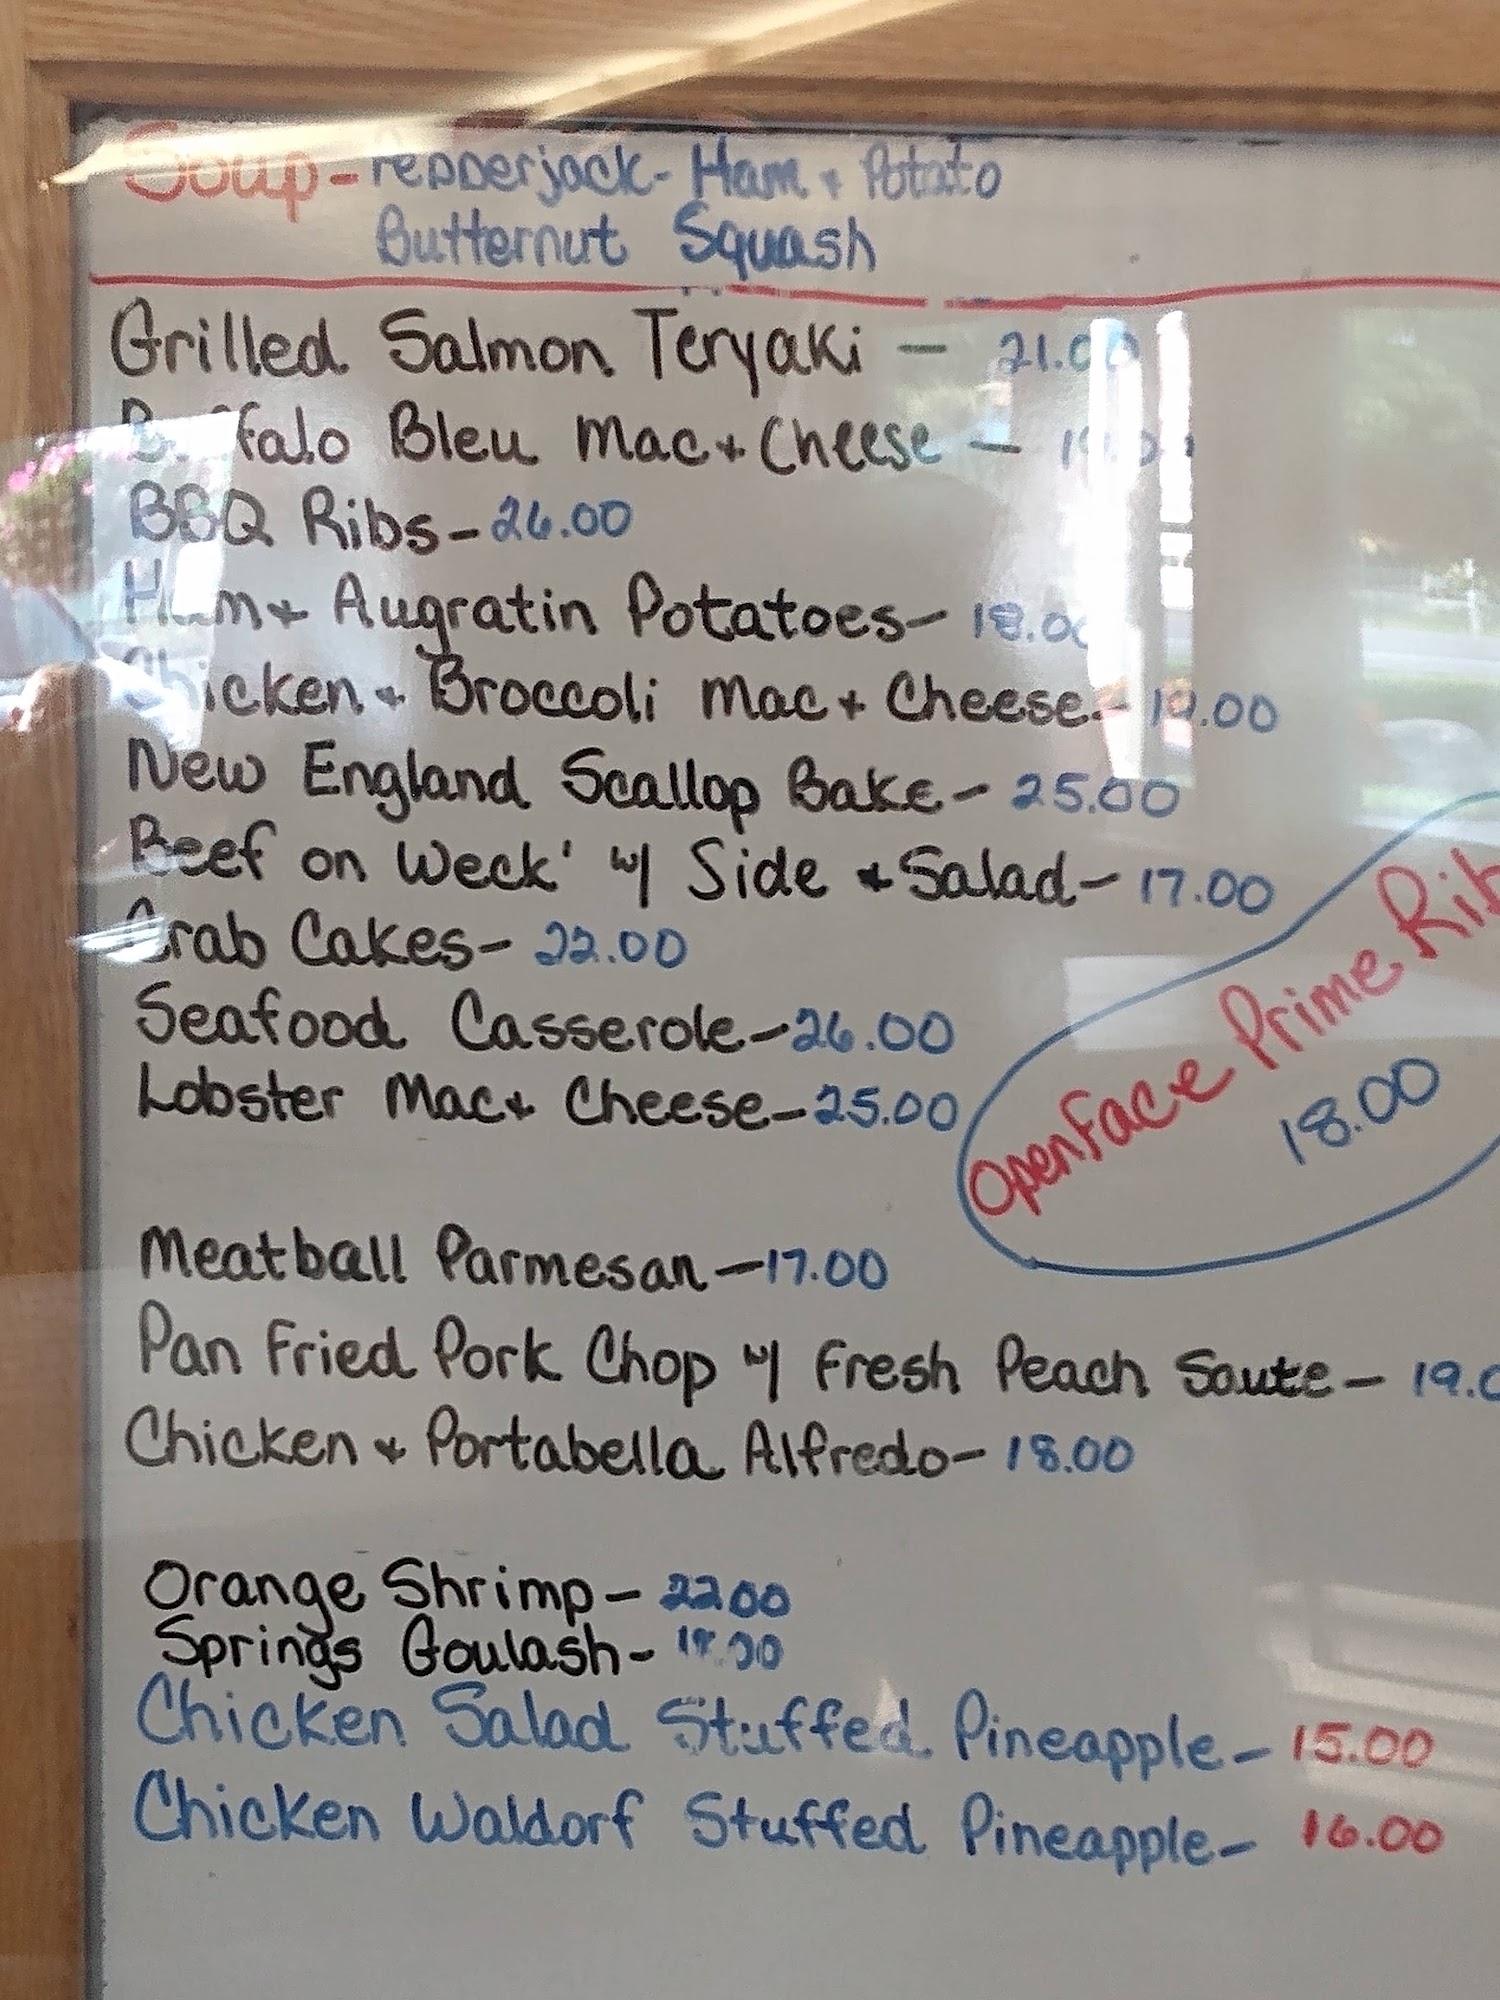 Soup - Pepperjack - Ham + Potato
Butternut Squash
Grilled Salmon Teryaki — 21.00
Buffalo Bleu Mac + Cheese —
BBQ Ribs - 26.00
Ham + Augratin Potatoes - 18.00
Chicken + Broccoli Mac + Cheese - 19.00
New England Scallop Bake - 25.00
Beef on Weck' w/ Side + Salad - 17.00
Crab Cakes - 22.00
Seafood Casserole - 26.00
Lobster Mac + Cheese - 25.00
Openface Prime Rib
18.00
Meatball Parmesan - 17.00
Pan Fried Pork Chop w/ Fresh Peach Saute - 19.0
Chicken + Portabella Alfredo - 18.00
Orange Shrimp - 22.00
Springs Goulash -
Chicken Salad Stuffed Pineapple - 15.00
Chicken Waldorf Stuffed Pineapple - 16.00